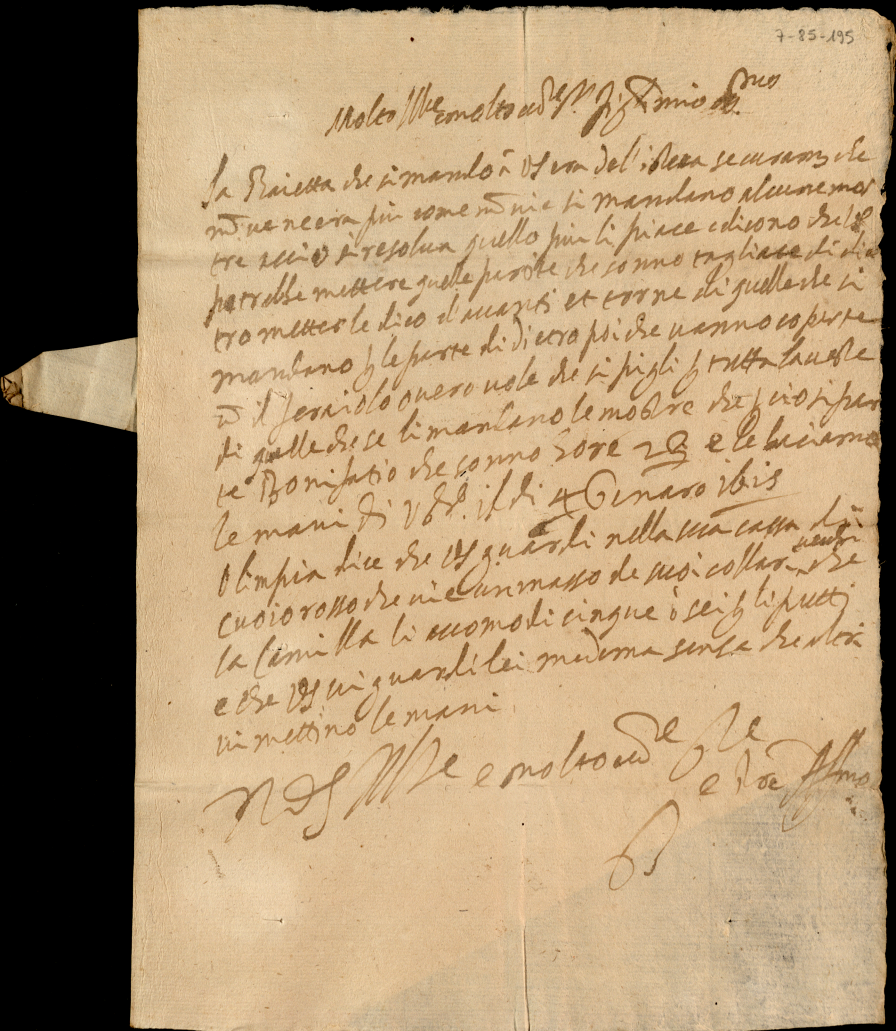 7-85-195
Molto Ill.re e molto ... S.r fig.lo mio
la Baietta che si mandò à VS era dell'istessa securam.te che
nõ ve ne era più come nõ vi è si mandano alcune mos
tre acciò si resolva quello più li piace e dicono che
potrebbe mettere quelle partite che sonno tagliate di die
tro metterle dico d'avanti et torne di quelle che si
mandano p le parte di dietro poi che vanno coperte
il feraiolo overo vole che si pigli p tutta la veste
di quelle che se li mandano le mostre che p ciò si par
te Bonifatio che sonno hore 2 e le baciamo
le mani di il di 4 Genaro 1615
Olimpia dice che VS guardi nella sua cassa di
cuoio rosso che vi è un masso de suoi collari vecchi che
la Camilla li accomodi cinque ò sei p li putti
e che VS vi guardi lei medema senza che altri
vi mettino le mani
D VS Ill.re e molto
e